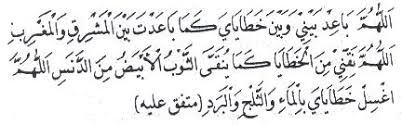 اَللَّهُمَّ بَاعِدْ بَيْنِيْ وَبَيْنَ خَطَايَايَ كَمَا بَاعَدْتَ بَيْنَ الْمَشْرِقِ وَالْمَغْرِبِ
اَللَّهُمَّ نَقِّنِيْ مِنَ الْخَطَايَا كَمَا يُنَقَّى الثَّوْبُ الْأَبْيَضُ مِنَ الدَّنَسِ اَللَّهُمَّ
اغْسِلْ خَطَايَايَ بِالْمَاءِ وَالثَّلْجِ وَالْبَرَدِ (متفق عليه)